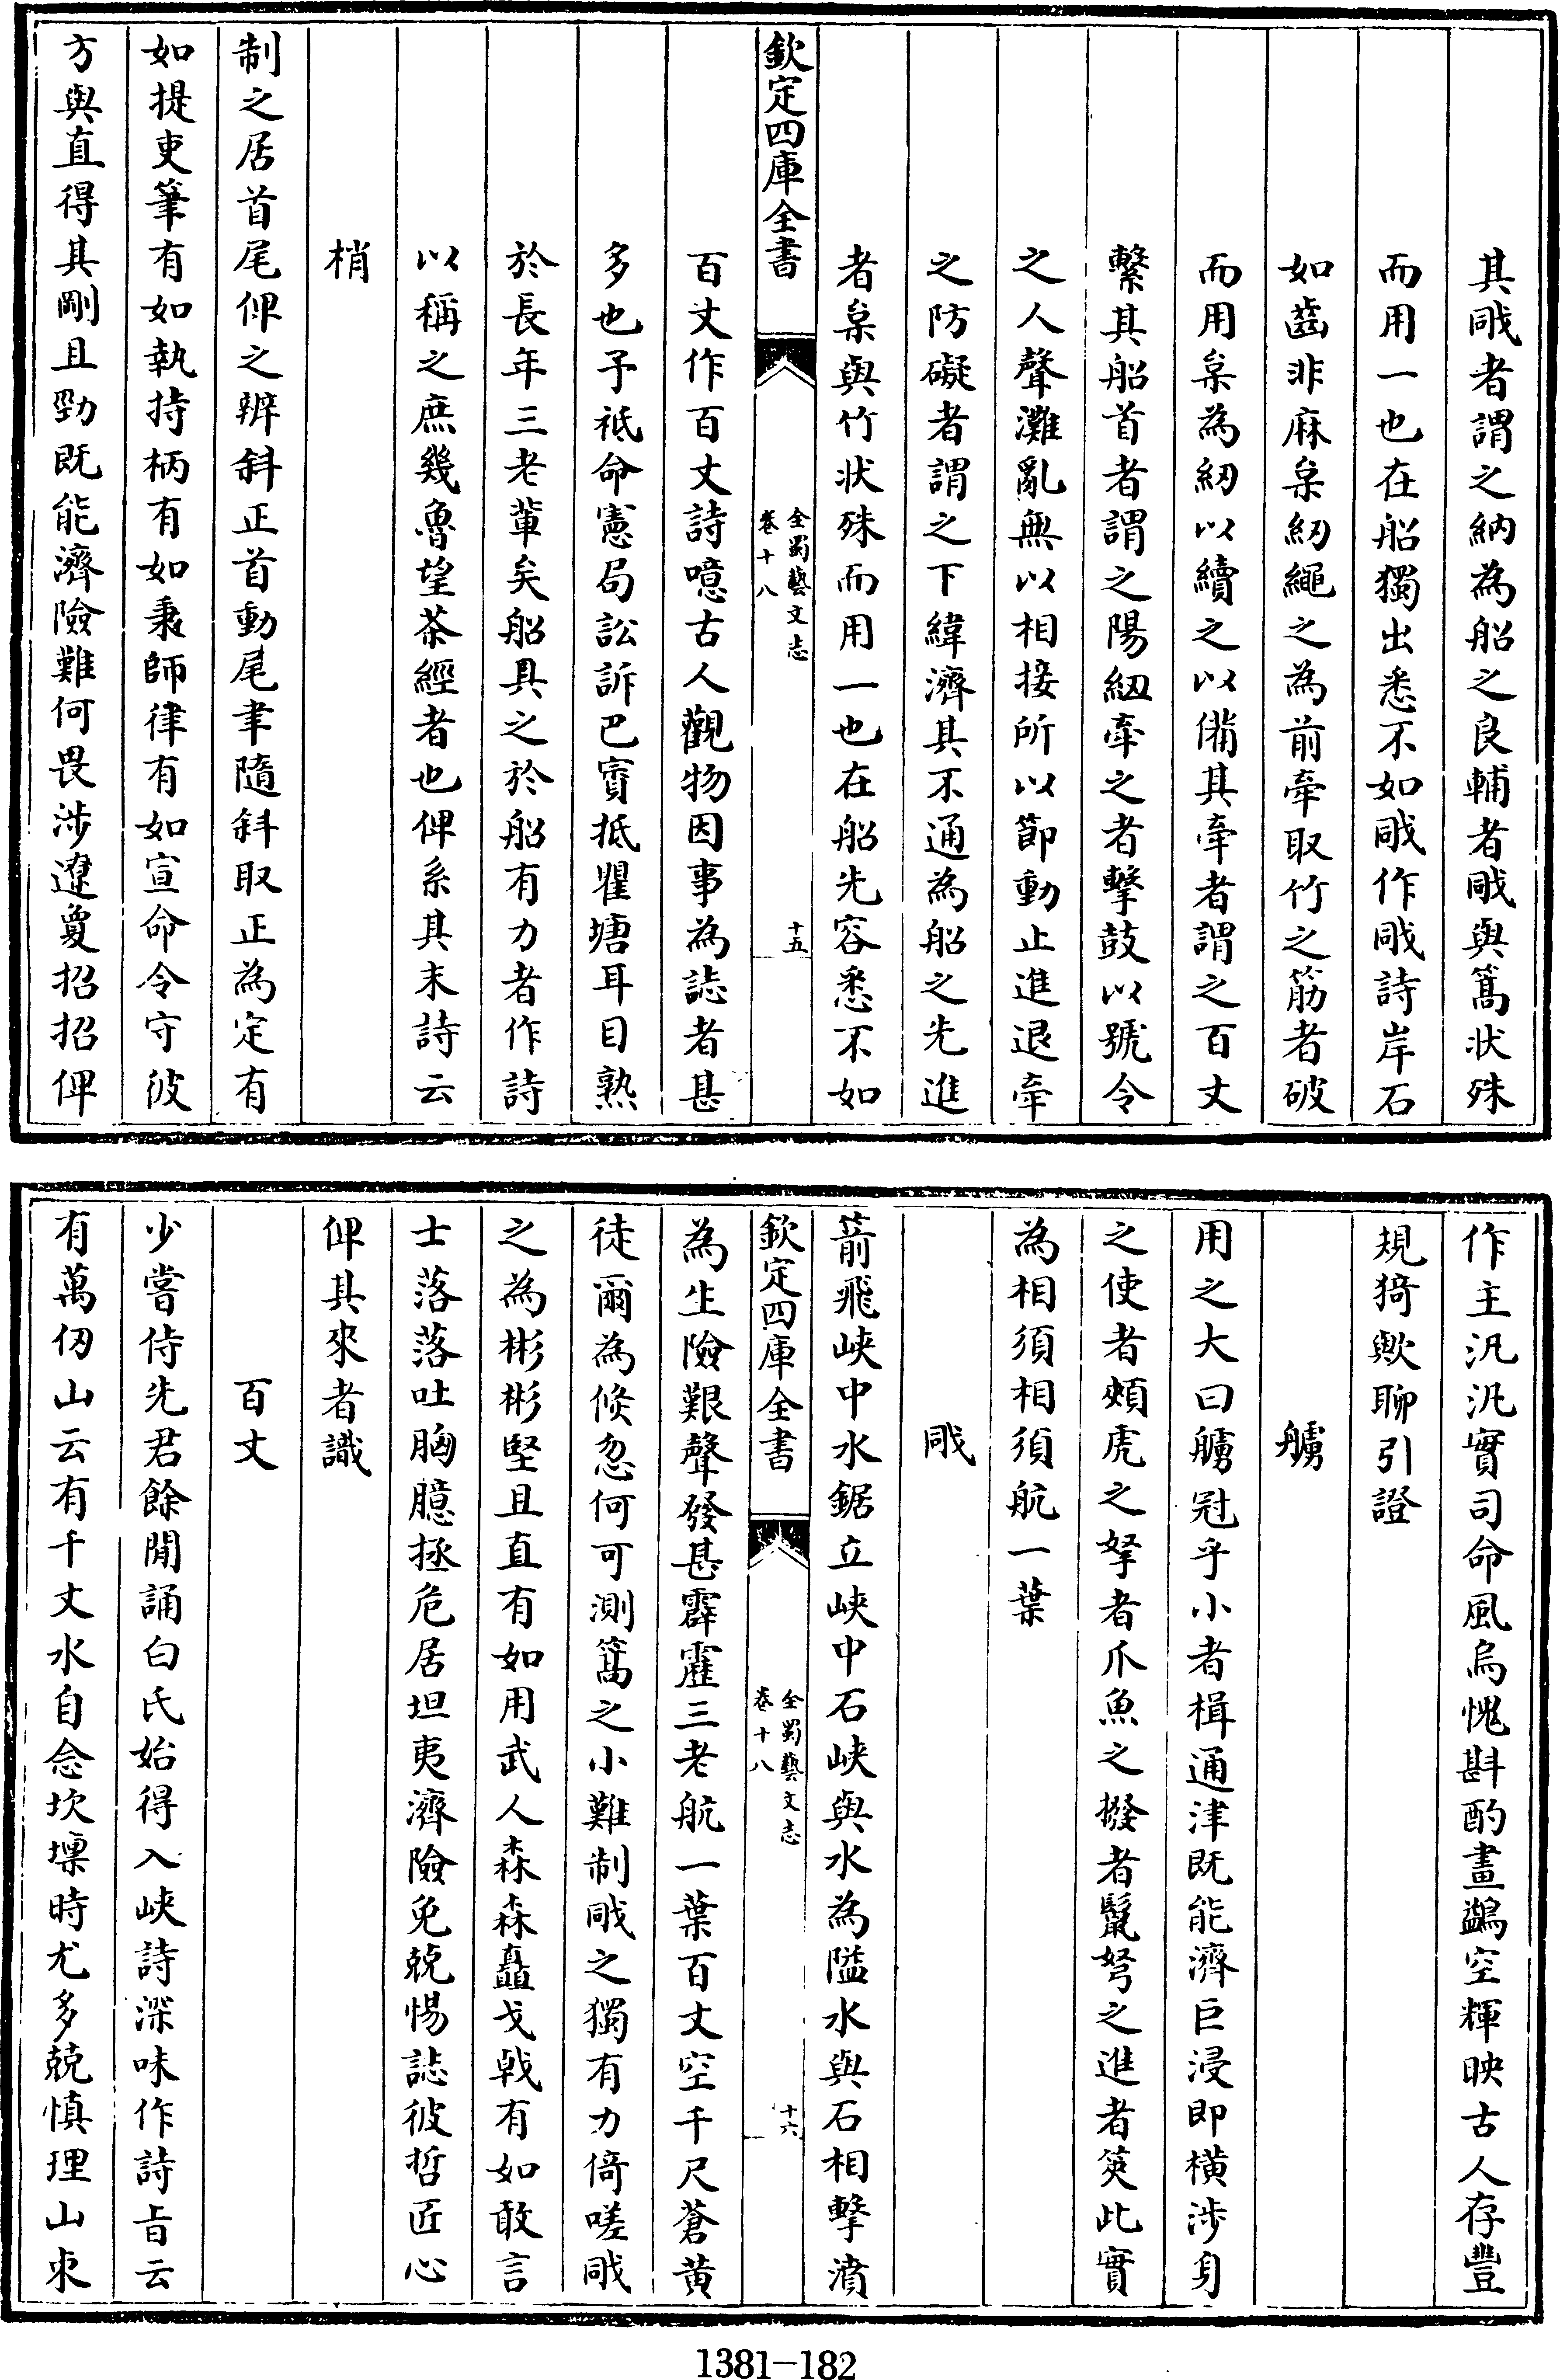 其戙者謂之納為船之良輔者戙與篙状殊
而用一也在船獨出悉不如戙作戙詩岸石
如齒非麻枲紉繩之為前牽取竹之筋者破
而用枲為紉以續之以備其牽者謂之百丈
繫其船首者謂之陽紐牽之者擊鼓以號令
之人聲灘亂無以相接所以節動止進退牽
之防礙者謂之下緯濟其不通為船之先進
者枲與竹状殊而用一也在船先容悉不如
欽定四庫全書
全蜀藝文志
卷十八
十五
百丈作百丈詩噫古人觀物因事為誌者甚
多也予祇命憲局訟訴巴賨抵瞿塘耳目熟
於長年三老輩矣船具之於船有力者作詩
以稱之庶幾魯望茶經者也俾系其末詩云
梢
制之居首尾俾之辨斜正首動尾聿隨斜取正為定有
如提吏筆有如執持柄有如秉師律有如宣命令守彼
方與直得其剛且勁既能濟險難何畏涉遼夐招招俾
作主汎汎實司命風烏愧斟酌畫鷁空輝映古人存豐
規猗歟聊引證
艣
用之大曰艣冠乎小者楫通津既能濟巨浸即橫涉身
之使者頰虎之拏者爪魚之撥者鬣弩之進者筴此實
為相須相須航一葉
戙
箭飛峽中水鋸立峽中石峽與水為隘水與石相擊濆
欽定四庫全書
全蜀藝文志
卷十八
十六
為生險艱聲發甚霹靂三老航一葉百丈空千尺蒼黃
徒爾為倏忽何可測篙之小難制戙之獨有力倚嗟戙
之為彬彬堅且直有如用武人森森矗戈戟有如敢言
士落落吐胸臆拯危居坦夷濟險免兢惕誌彼哲匠心
俾其來者識
百丈
少嘗侍先君餘閒誦白氏始得入峽詩深味作詩旨云
有萬仞山云有千丈水自念坎壈時尤多兢慎理山束
1381-182